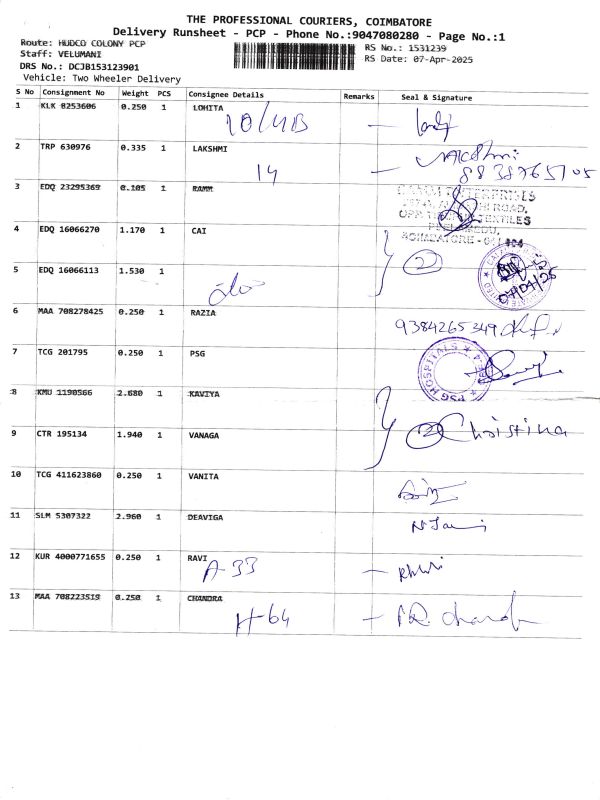 THE PROFESSIONAL COURIERS, COIMBATORE
Delivery Runsheet - PCP - Phone No.:9047080280 - Page No.:1
Route: HUDCO COLONY PCP
RS No.: 1531239
Staff: VELUMANI
RS Date: 07-Apr-2025
DRS No.: DCJB153123901
Vehicle: Two Wheeler Delivery
S No Consignment No Weight PCS Consignee Details Remarks Seal & Signature
1 KLK 8253606 0.250 1 LOHITA
10/4B
2 TRP 630976 0.335 1 LAKSHMI
14 8838765705
3 EDQ 23295369 0.105 1 RAMM
4 EDQ 16066270 1.170 1 CAI
2
5 EDQ 16066113 1.530 1
07/04/25
6 MAA 708278425 0.250 1 RAZIA
9384265349
7 TCG 201795 0.250 1 PSG
PSG HOSPITALS
8 KMU 1190566 2.680 1 KAVIYA
9 CTR 195134 1.940 1 VANAGA
2 Christina
10 TCG 411623860 0.250 1 VANITA
11 SLM 5307322 2.960 1 DEAVIGA
12 KUR 4000771655 0.250 1 RAVI
A-33
13 MAA 708223519 0.250 1 CHANDRA
H-64